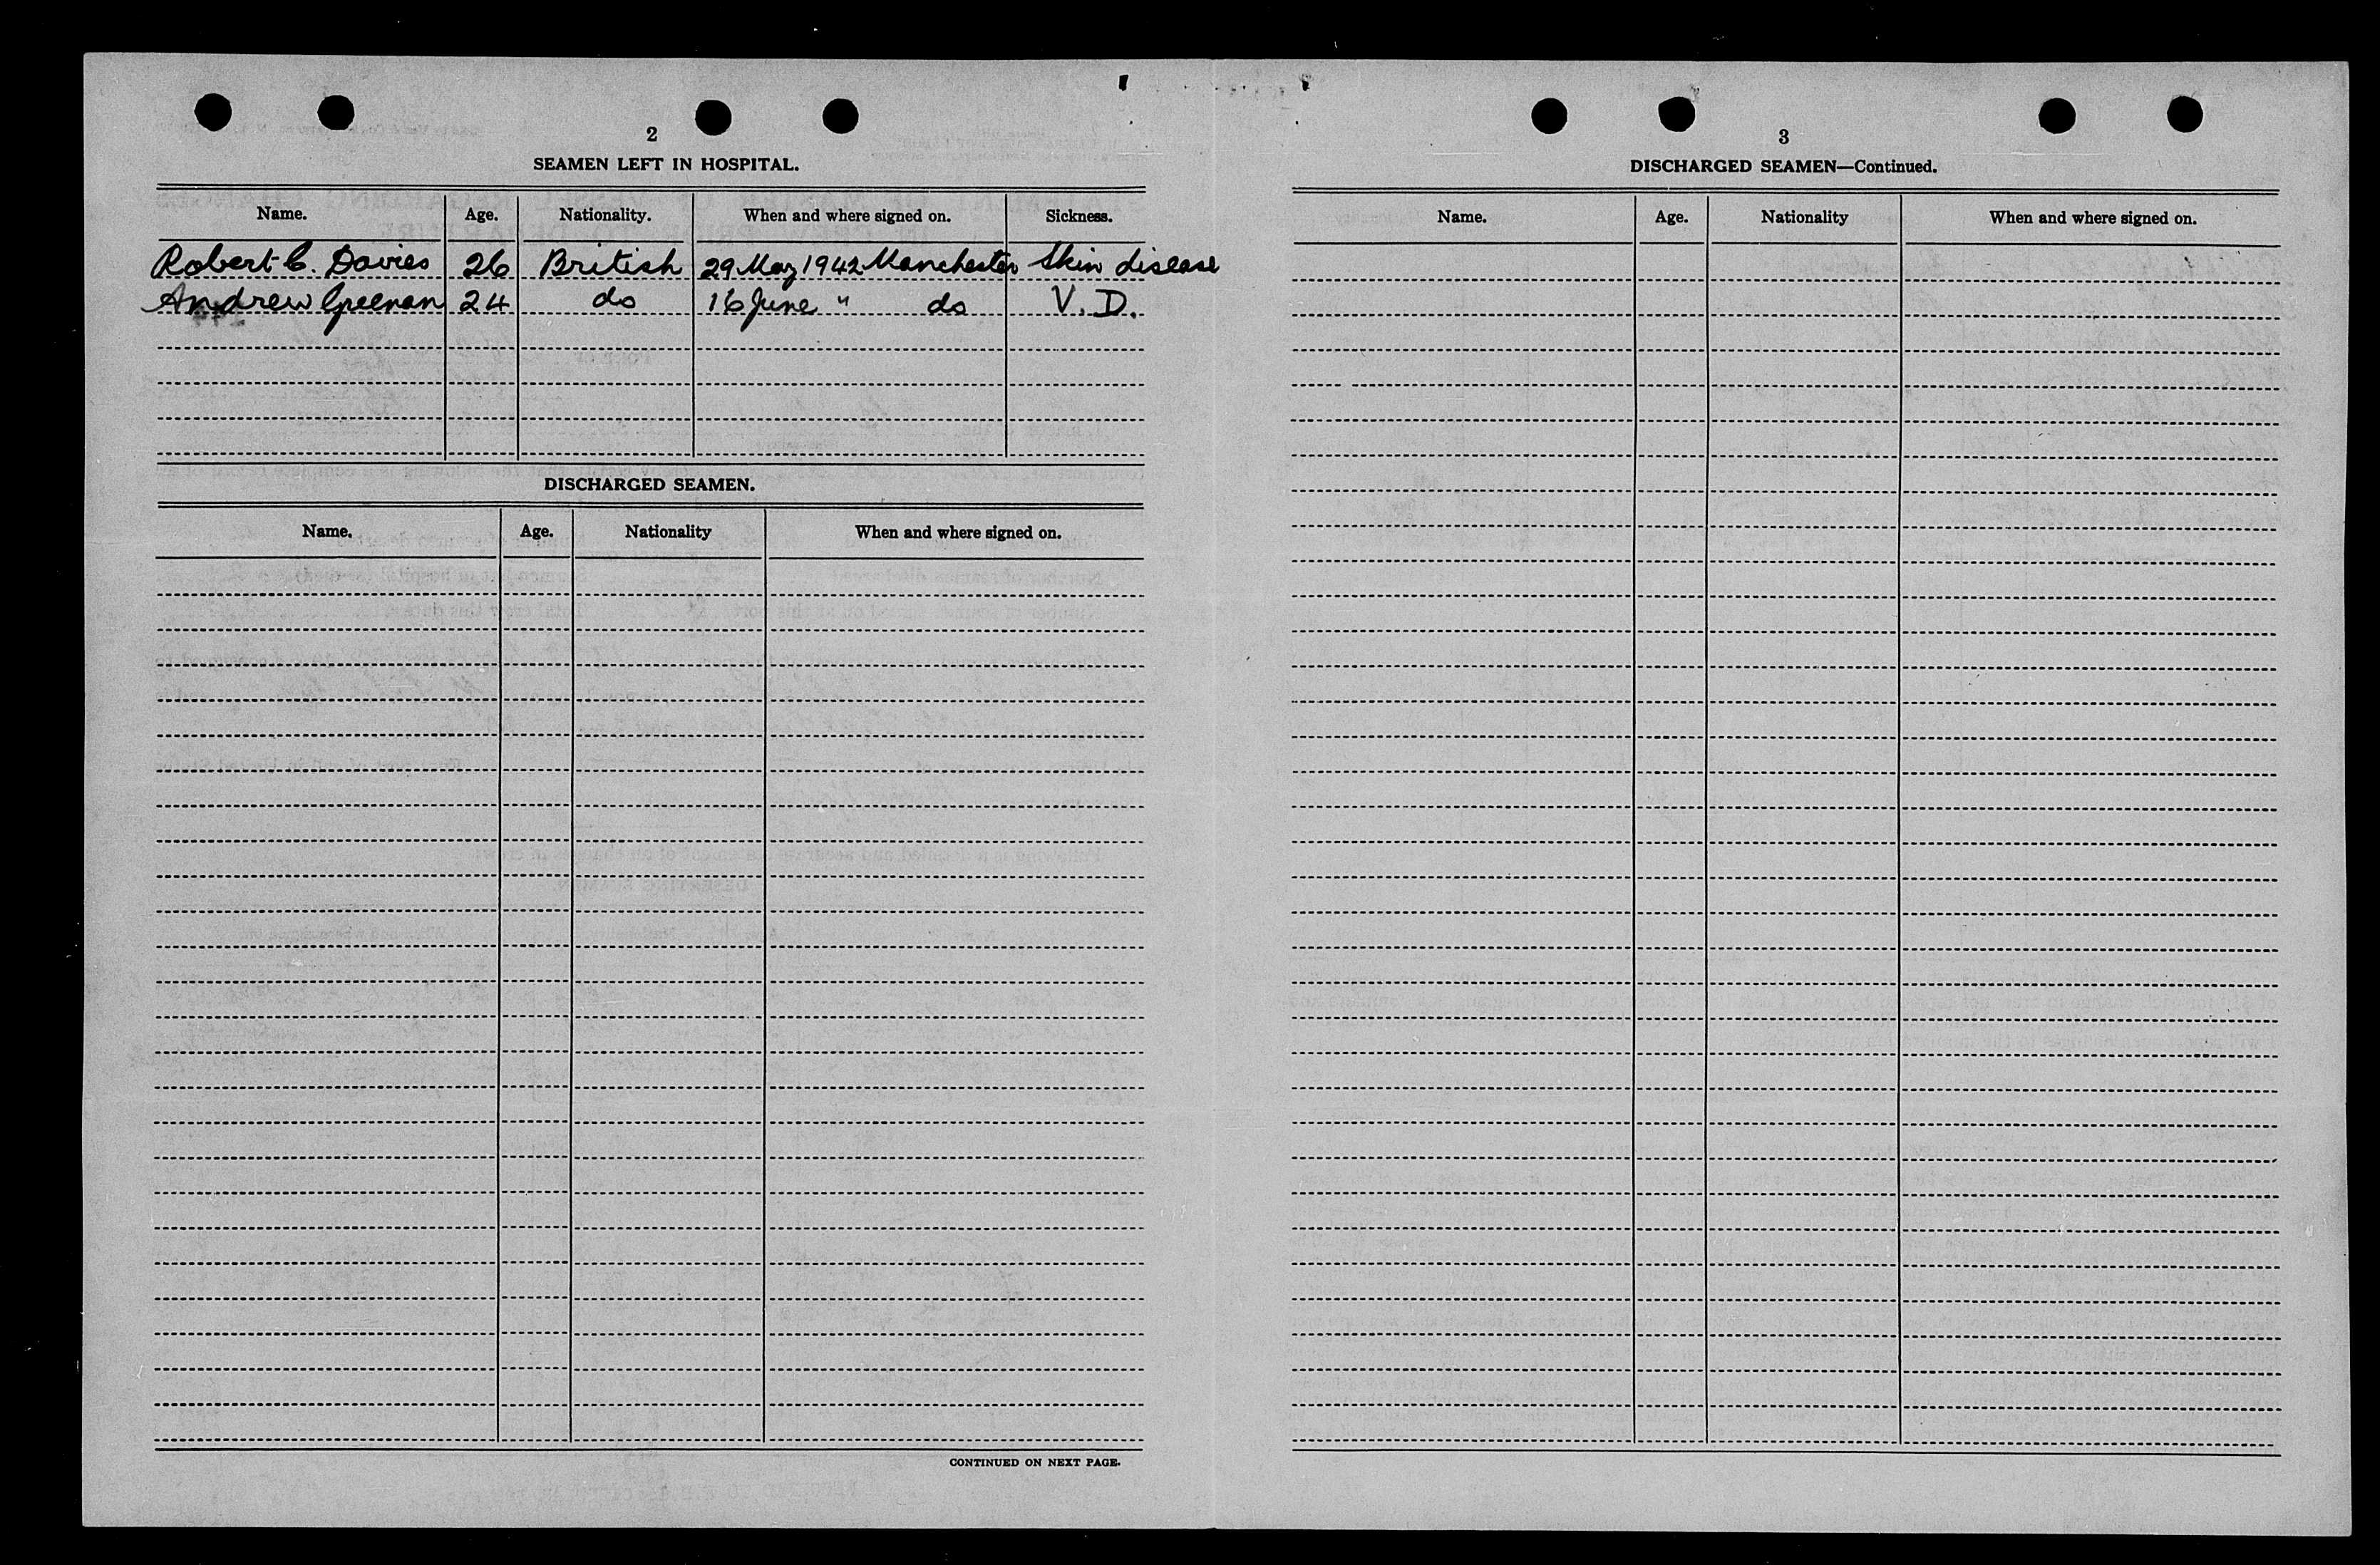 2
SEAMEN LEFT IN HOSPITAL.
Name. Age. Nationality. When and where signed on. Sickness.
Robert C. Davies 26 British 29 May 1942 Manchester Skin disease
Andrew Greenan 24 do 16 June " do V. D.
DISCHARGED SEAMEN.
Name. Age. Nationality When and where signed on.
CONTINUED ON NEXT PAGE.
3
DISCHARGED SEAMEN—Continued.
Name. Age. Nationality When and where signed on.